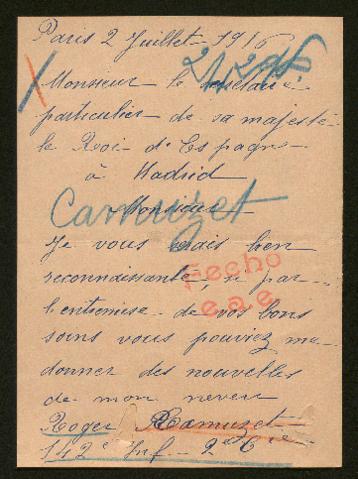 Paris 2 Juillet 1916
Monsieur le secrétaire
particulier de sa majesté
le Roi d'Espagne
à Madrid
Camuzet
Monsieur
Je vous serais bien
reconnaissante, si par
Hecho
l'entremise de vos bons
e.a.e
soins vous pouviez me
donner des nouvelles
de mon neveu
Roger Camuzet
142e Inf - 2e Cie